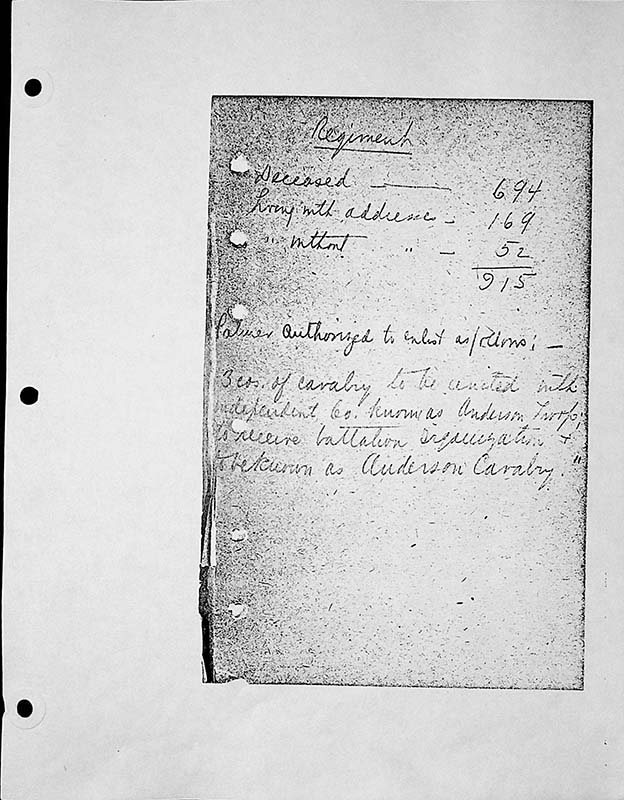 Regiment
Deceased — 694
Living with addresses — 169
" without " — 52
915
Palmer authorized to enlist as follows; —
"3 cos. of cavalry to be united with
independent Co. known as Anderson Troop,
to receive battalion organization &
to be known as Anderson Cavalry"